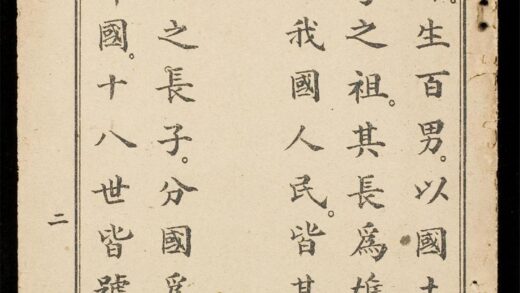 生百男。以國土
之祖。其長爲雄
我國人民。皆其
之長子。分國爲
國。十八世皆號
二